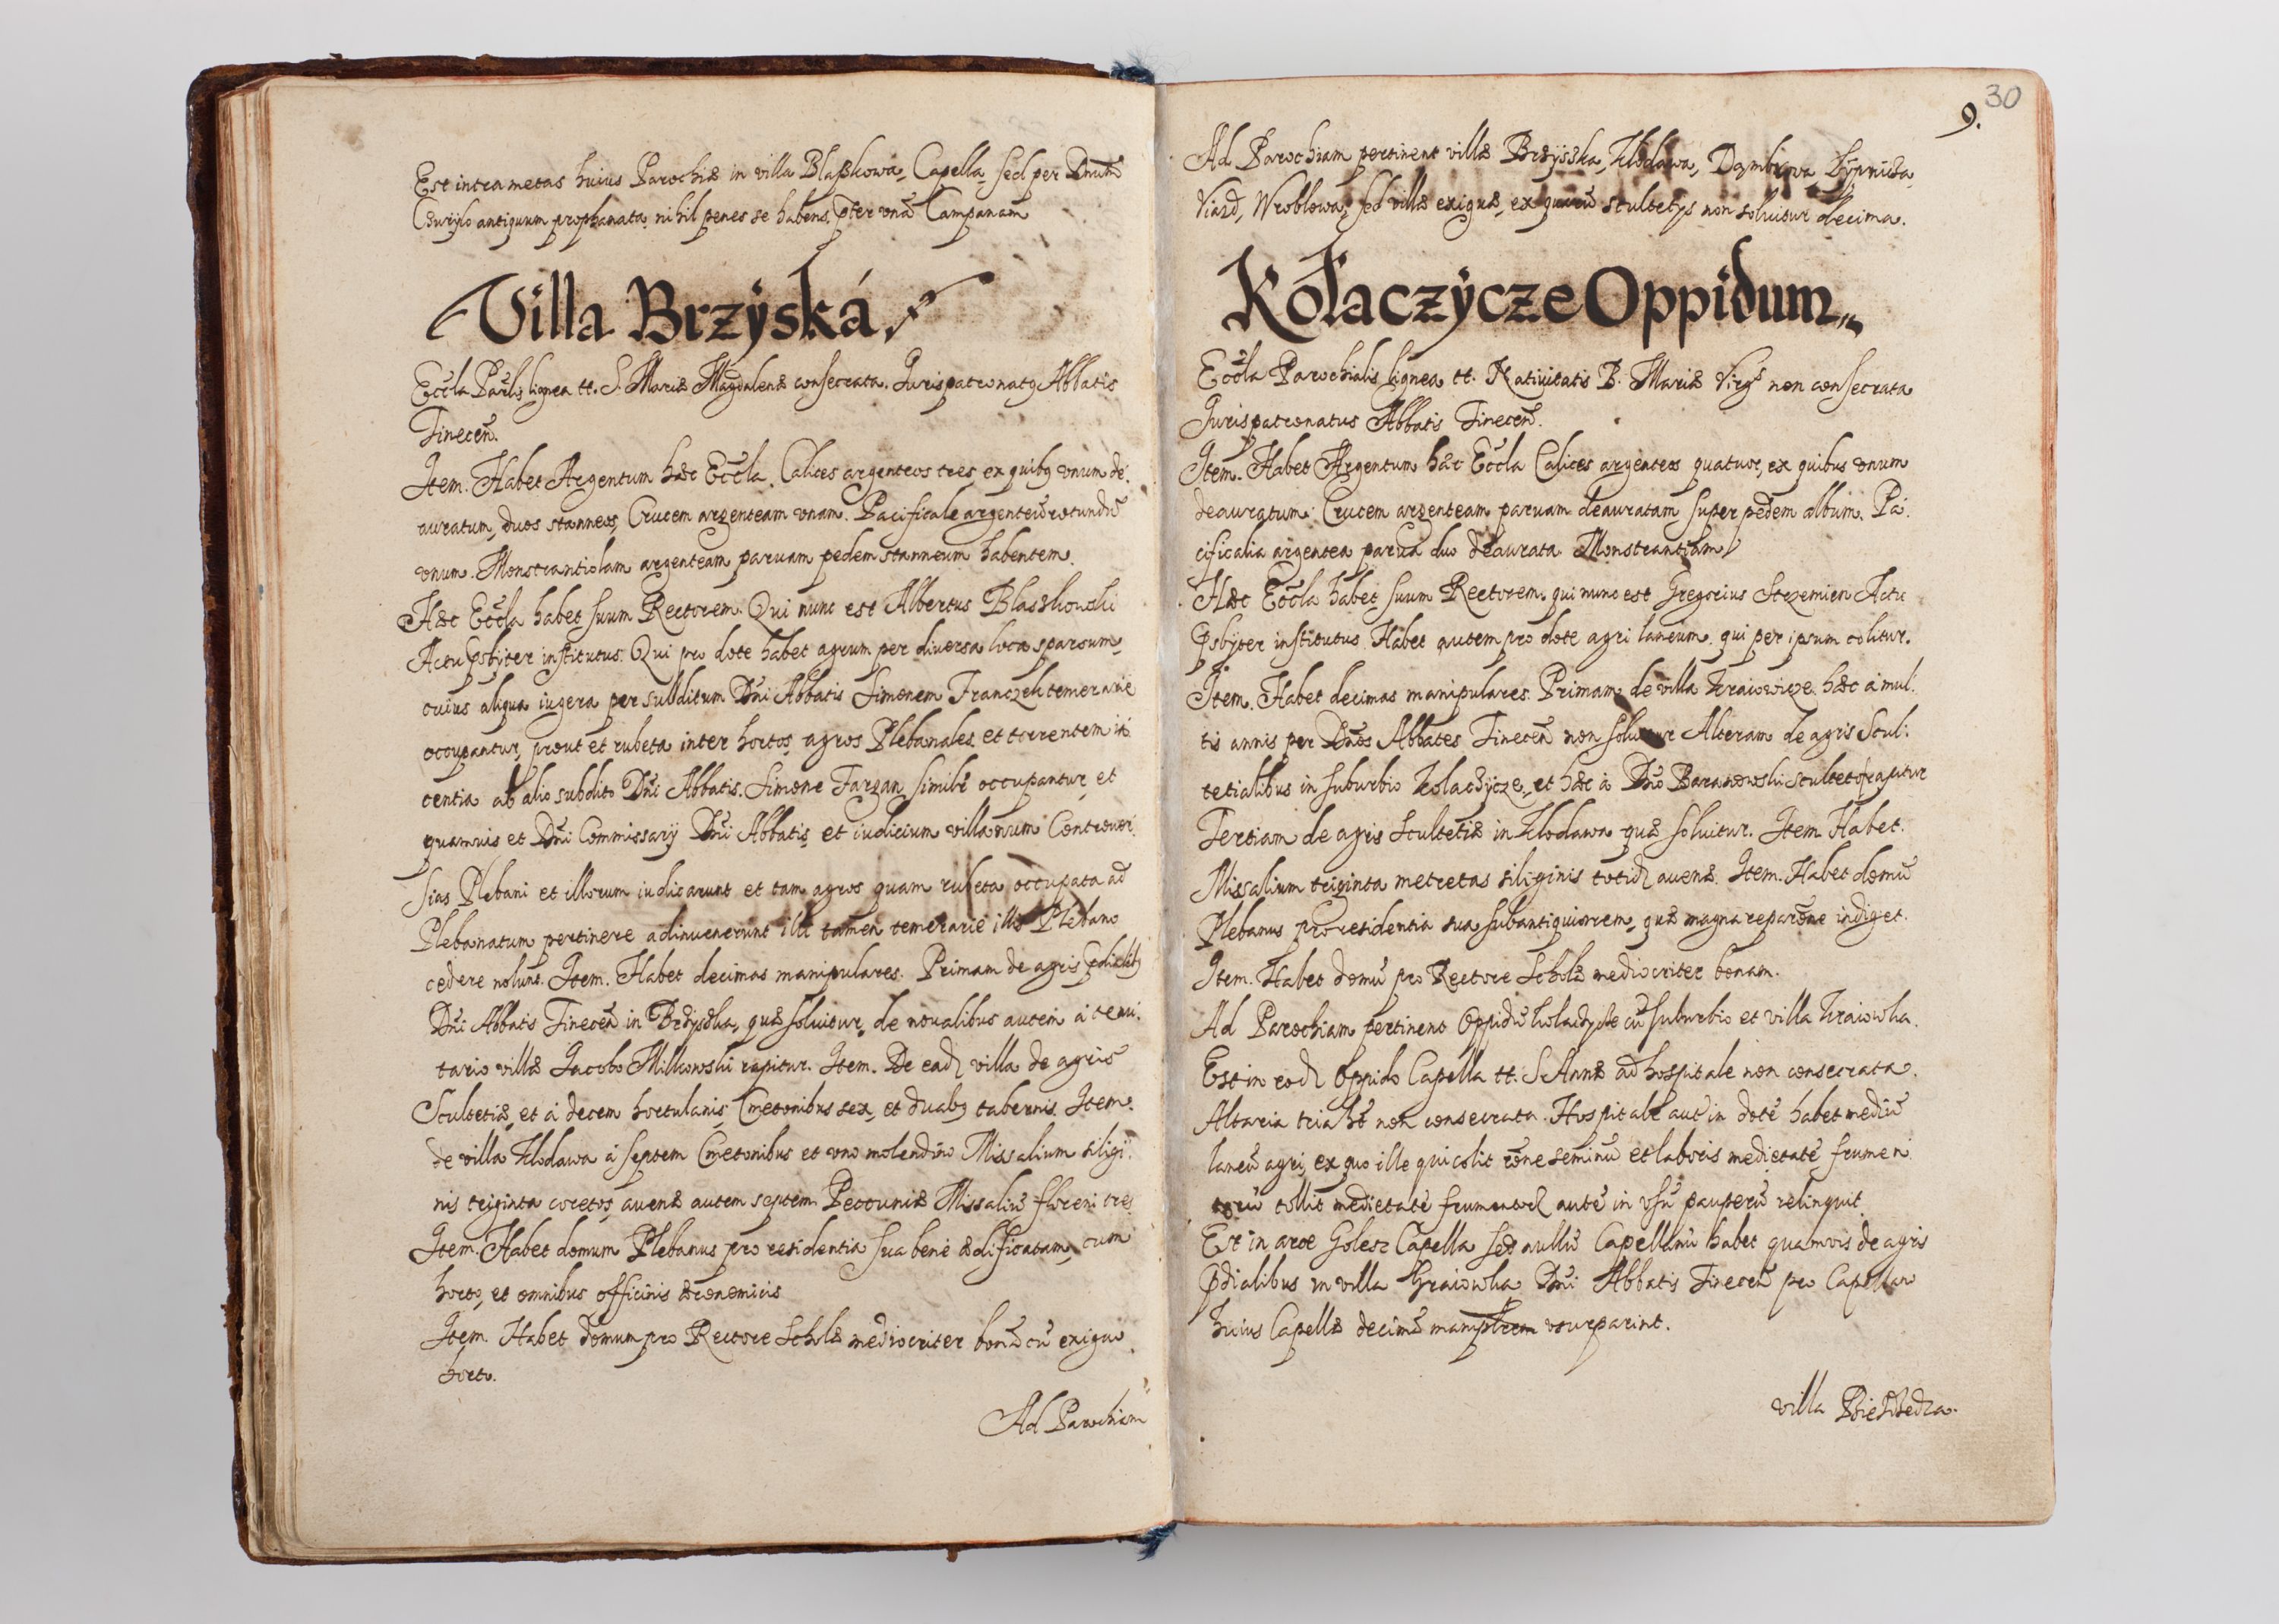 Est intra metas huius Parochiæ in villa Blaßkowa, Capella, sed per Dnum
antiquum prophanata nihil penes se habens, pter vnā Campanam
Villa Brzÿská
Eccla Paulis lignea tt. S. Mariæ Magdalenæ consecrata. Jurispatronatq Abbatis
Tinecen̄.
Item. Habet Argentum hæc Eccla. Calices argenteos tres ex quibq vnum de:
auratum, duos stanneos, Crucem argenteam vnam. Pacificale argenteū rotundū
vnum. Monstrantiolam argenteam paruam pedem stanneum habentem.
Hæc Eccla habet suum Rectorem. Qui nunc est Albertus Blaszkowski
Actu Psbiter institutus. Qui pro dote habet agrum per diuersa loca sparsum,
cuius aliqua iugera per subditum Dni Abbatis Simonem Franczek temerarie
occupantur, prout et rubeta inter hortos, agros Plebanales et torrentem ia:
centia ab alio subdito Dni Abbatis. Simone Fargan similr occupantur, et
quamuis et Dni Commissarij Dni Abbatis et iudicium villanum Controuer:
sias Plebani et illorum iudicarunt et tam agros quam rubeta occupata ad
Plebanatum pertinere adinuenerunt illi tamen temerarie illa Plebano
cedere nolunt. Item. Habet decimas manipulares. Primam de agris Pdialibq
Dni Abbatis Tinecen̄ in Brzyska, quæ soluitur, de noualibus autem à tenu:
tario villæ Jacobo Milkowski rapitur. Item. De ead villa de agris
Scultetiæ, et à decem hortulanis, Cmetonibus sex, et duabq tabernis. Item.
de villa Klodawa à septem Cmetonibus et vno molendino Missalium siligi:
nis triginta coretos, auenæ autem septem. Pecuniæ Missaliū floreni tres
Item. Habet domum Plebanus pro residentia sua benè ædificatam, cum
horto, et omnibus officinis æconomicis
Item. Habet domum pro Rectore Scholæ mediocriter bonā cū exiguo
horto.
Ad Parochiam
30
9.
Ad Parochiam pertinent villæ Brzÿska, Klodawa, Dąmbrowa, Lÿpnicka,
Viazd, Wroblowa, sed villæ exiguæ, ex quarū scultetijs non soluitur decima.
Kołaczÿcze Oppidum
Eccla Parochialis lignea tt. Natiuitatis B. Mariæ Virgs non consecrata
Jurispatronatus Abbatis Tinecen̄.
Item. Habet Argentum hæc Eccla Calices argenteos quatuor, ex quibus vnum
deauratum. Crucem argenteam paruam deauratam super pedem album. Pa:
cificalia argentea parua duo deaurata Monstrantiam
Hæc Eccla habet suum Rectorem qui nunc est Gregorius Strzemien Actu
Psbyter institutus. Habet autem pro dote agri laneum. qui per ipsum colitur.
Item. Habet decimas manipulares. Primam de villa Kraiowicze. hæc à mul:
tis annis per Dnos Abbates Tinecen̄ non soluitur Alteram de agris Scul:
tetialibus in suburbio Kolaczÿcze, et hæc à Dno Baranowski Sculteto rapitur
Tertiam de agris Scultetiæ in Klodawa quæ soluitur. Item Habet.
Missalium triginta metretas siliginis totid auenæ. Item. Habet domū
Plebanus pro residentia sua subantiquiorem, quæ magna reparōne indiget.
Item. Habet domū pro Rectore Scholæ mediocriter bonam.
Ad Parochiam pertinent Oppidū Kolaczycze cū suburbio et villa Kraiowka.
Est in eod Oppido Capella tt. S. Annæ ad hospitale non consecrata.
Altaria tria ht non consecrata. Hospitale aut in dotē habet mediū
laneū agri, ex quo ille qui colit rōne seminū et laboris medietatē frumen:
torū tollit medietatē frumentor autē in vsū pauperū relinquit
Est in arce Golesz Capella sed nullū Capellanū habet quamvis de agris
Pdialibus in villa Kraiowka Dni Abbatis Tinecen̄ pro Capellano
huius Capellæ decimā manipularem vsurparint.
villa Bieździedza.